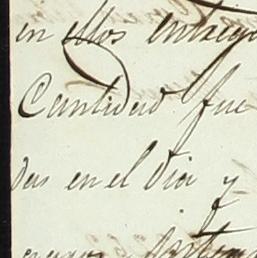 en ellos entreg
Cantidad fue
das en el dia y